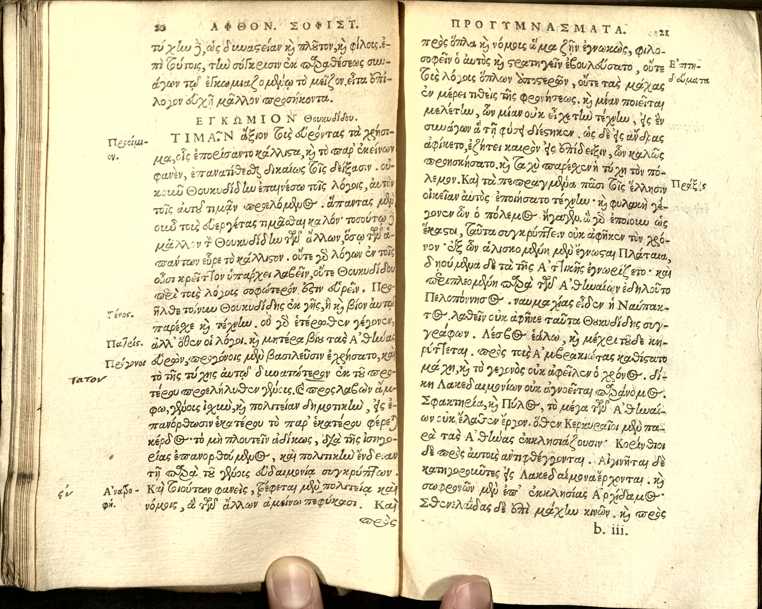 20 ΑΦΘΟΝ. ΣΟΦΙΣΤ.
τύχην ἢ, ὡς δυναστείαν καὶ πλοῦτον, καὶ φίλους. ἐ-
πὶ τούτοις, τὴν σύγκρισιν ἐκ παραθέσεως συν-
άγων τῷ ἐγκωμιαζομένῳ τὸ μεῖζον. εἶτα ἐπί-
λογον εὐχῇ μᾶλλον προσήκοντα.
ΕΓΚΩΜΙΟΝ Θουκυδίδου.
Προοίμι-
ον.
ΤΙΜΑ͂Ν ἄξιον τοὺς εὑρόντας τὰ χρήσι-
μα, οἷς ἐπορίσαντο κάλλιστα, καὶ τὸ παρ' ἐκείνων
φανὲν, ἐπανατίθεσθαι δικαίως τοῖς δείξασιν. οὐ-
κοῦν Θουκυδίδην ἐπαινέσω τοῖς λόγοις, αὐτὸν
τοῖς αὐτοῦ τιμᾶν προελόμενος. ἅπαντας μὲν
οὖν τοὺς εὐεργέτας τιμᾶσθαι καλόν· τοσούτῳ δὲ
μᾶλλον τὸν Θουκυδίδην τῶν ἄλλων, ὅσῳ τῶν ἁ-
πάντων εὗρε τὸ κάλλιστον. οὔτε γὰρ λόγων ἐν τοῖς
οὖσι κρεῖττον ὑπάρχει λαβεῖν, οὔτε Θουκυδίδου
περὶ τοὺς λόγους σοφώτερόν ἐστιν εὑρεῖν. Προ
Γένος.
ῆλθε τοίνυν Θουκυδίδης ἐκ γῆς, ἣ καὶ βίον αὐτῷ
παρέχε καὶ τέχνην. οὐ γὰρ ἑτέρωθεν γέγονεν,
Πατρίς.
ἀλλ' ὅθεν οἱ λόγοι. καὶ μητέρα βίου τὰς Ἀθήνας
Πρόγονοι
εὑρὼν, προγόνοις μὲν βασιλεῦσιν ἐχρήσατο, καὶ
τατον
τὸ τῆς τύχης αὐτῷ δυνατώτερον ἐκ τοῦ προ-
τέρου προεληλύθει γένους. προσλαβὼν ἄμ-
φω, γένους ἰσχὺν, καὶ πολιτείαν δημοτικὴν, εἰς ἐ-
πανόρθωσιν ἑκατέρου τὸ παρ' ἑκατέρου φέρει
κέρδος· τὸ μὴ πλουτεῖν ἀδίκως, διὰ τῆς ἰσηγο-
ρίας ἐπανορθούμενος, καὶ πολιτικὴν ἔνδειαν
τῇ παρὰ τοῦ γένους εὐδαιμονίᾳ συγκρύπτων.
Ἀνατρο-
φή.
Καὶ τοιούτων φανεὶς, τρέφεται μὲν πολιτείᾳ καὶ
νόμοις, ἃ τῶν ἄλλων ἀμείνω πεφύκασι. Καὶ
πρὸς
ΠΡΟΓΥΜΝΑΣΜΑΤΑ. 21
πρὸς ὅπλα καὶ νόμους ἅμα ζῆν ἐγνωκὼς, φιλο-
Ἐπιτη-
δεύματα
σοφεῖν ὁ αὐτὸς καὶ στρατηγεῖν ἐβουλεύσατο, οὔτε
τοὺς λόγους ὅπλων ἀποστερῶν, οὔτε τὰς μάχας
ἐν μέρει τιθεὶς τῆς φρονήσεως. καὶ μίαν ποιεῖται
μελέτην, ὧν μίαν οὐκ εἶχε τὴν τέχνην, εἰς ἓν
συνάγων ἃ τῇ φύσει διέστηκεν. ὡς δὲ εἰς ἄνδρας
ἀφίκετο, ἐζήτει καιρὸν εἰς ἐπίδειξιν, ὧν καλῶς
προησκήσατο. καὶ ταχὺ παρέσχεν ἡ τύχη τὸν πό-
Πράξεις
λεμον. Καὶ τὰ πεπραγμένα πᾶσι τοῖς ἕλλησιν
οἰκείαν αὐτὸς ἐποιήσατο τέχνην· καὶ φυλακὴ γέ-
γονεν ὧν ὁ πόλεμος ἤγαγεν. ἃ γὰρ ἐποίουν ὡς
ἕκαστοι, ταῦτα συγκρύπτειν οὐκ ἀφῆκεν τὸν χρό-
νον· ἐξ ὧν ἁλισκομένη μὲν ἔγνωσται Πλάταια,
δῃούμενα δὲ τὰ τῆς Ἀττικῆς ἐγνωρίζετο· καὶ
περιπλεομένη παρὰ τῶν Ἀθηναίων ἐδηλοῦτο
Πελοπόννησος. ναυμαχίας εἶδεν ἡ Ναύπακ-
τος. λαθεῖν οὐκ ἀφῆκε ταῦτα Θουκυδίδης συγ-
γράφων. Λέσβος ἑάλω, καὶ μέχρι τοῦδε κη-
ρύττεται. πρὸς τοὺς Ἀμβρακιώτας καθίστατο
μάχη, καὶ τὸ γεγονὸς οὐκ ἀφεῖλεν ὁ χρόνος. δί-
κη Λακεδαιμονίων οὐκ ἀγνοεῖται παράνομος.
Σφακτηρία, καὶ Πύλος, τὸ μέγα τῶν Ἀθηναί-
ων οὐκ ἔλαθεν ἔργον. ὅθεν Κερκυραῖοι μὲν πα-
ρὰ τὰς Ἀθήνας ἐκκλησιάζουσιν· Κορίνθιοι
δὲ πρὸς αὐτοὺς ἀντιφθέγγονται. Αἰγινῆται δὲ
κατηγοροῦντες εἰς Λακεδαίμονα ἔρχονται. καὶ
σωφρονῶν μὲν ἐπ' ἐκκλησίας Ἀρχίδαμος.
Σθενελαΐδας δὲ ἐπὶ μάχην κινῶν. καὶ πρὸς
b. iii.